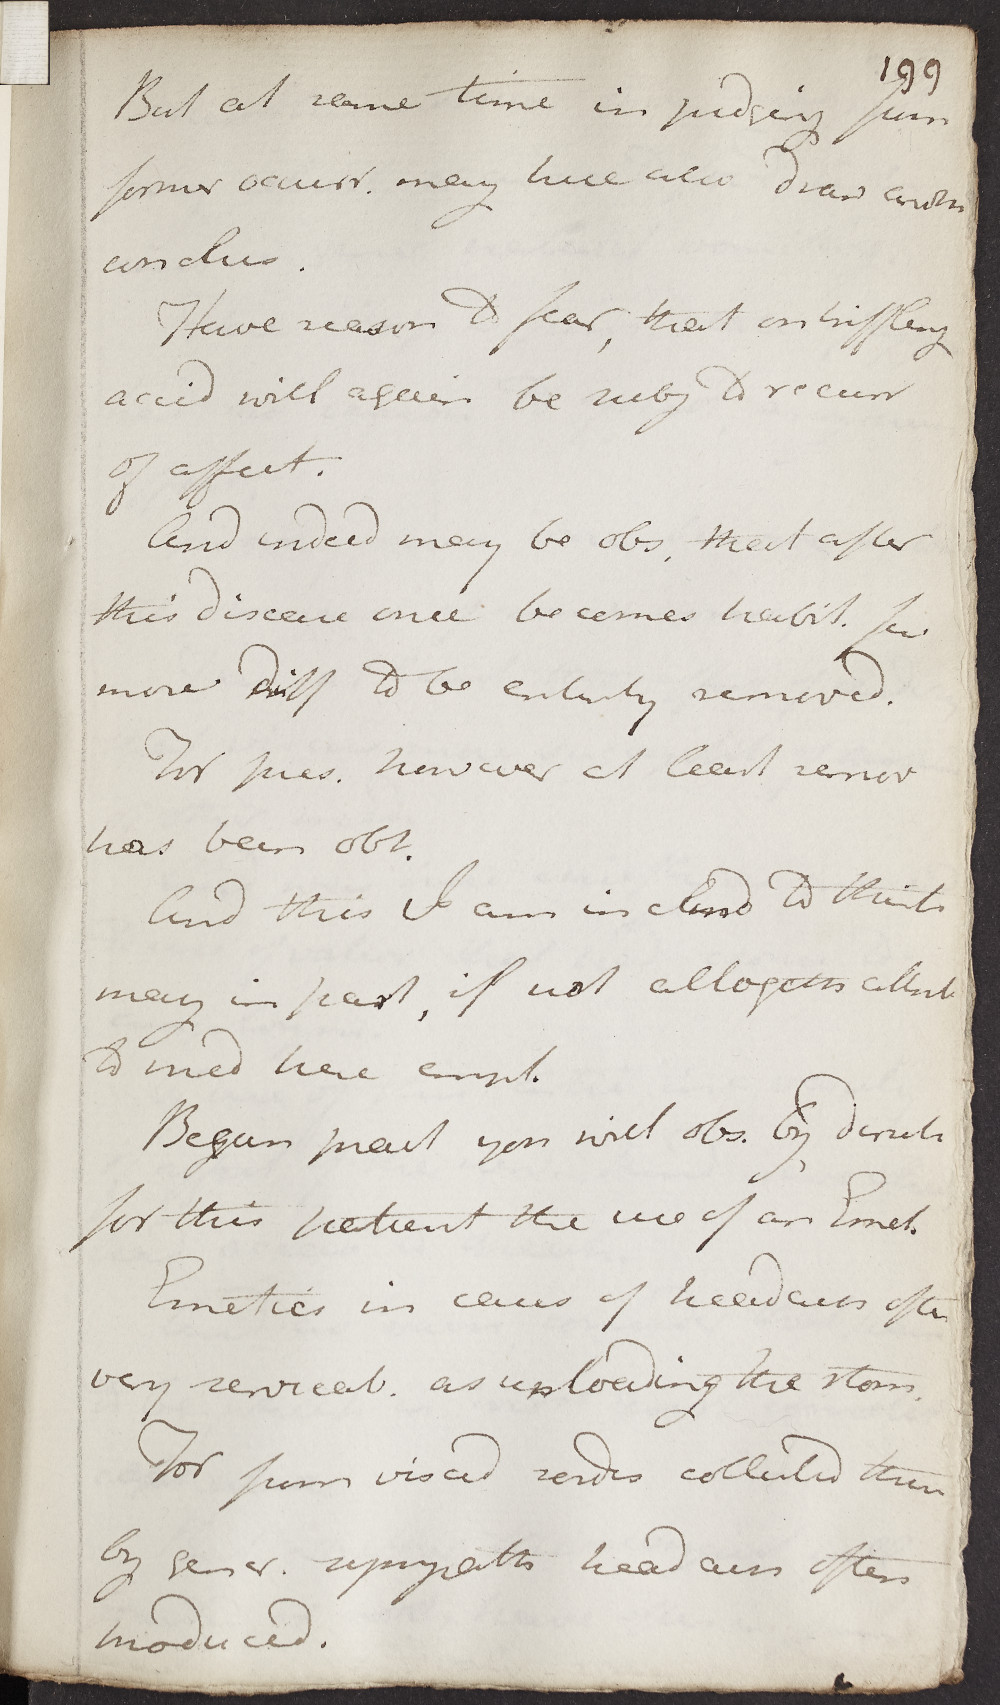 199
But at same time in judging from
former occurr. may here also draw anoth
conclus.
Have reason to fear, that on triffling
accid will again be subj to recurr
of affect.
And indeed may be obs, that after
this disease once becomes habit. far
more diff to be entirely removed.
For pres. however at least remov
has been obt.
And this I am inclind to think
may in part, if not allogeth attrib
to med here empl.
Begun pract you will obs. by, direct
for this patient the use of an Emet.
Emetics in cases of headach often
very serviceab. as unloading the stom.
For from viscid sordes collected there
by gener. sympath headach often
produced.